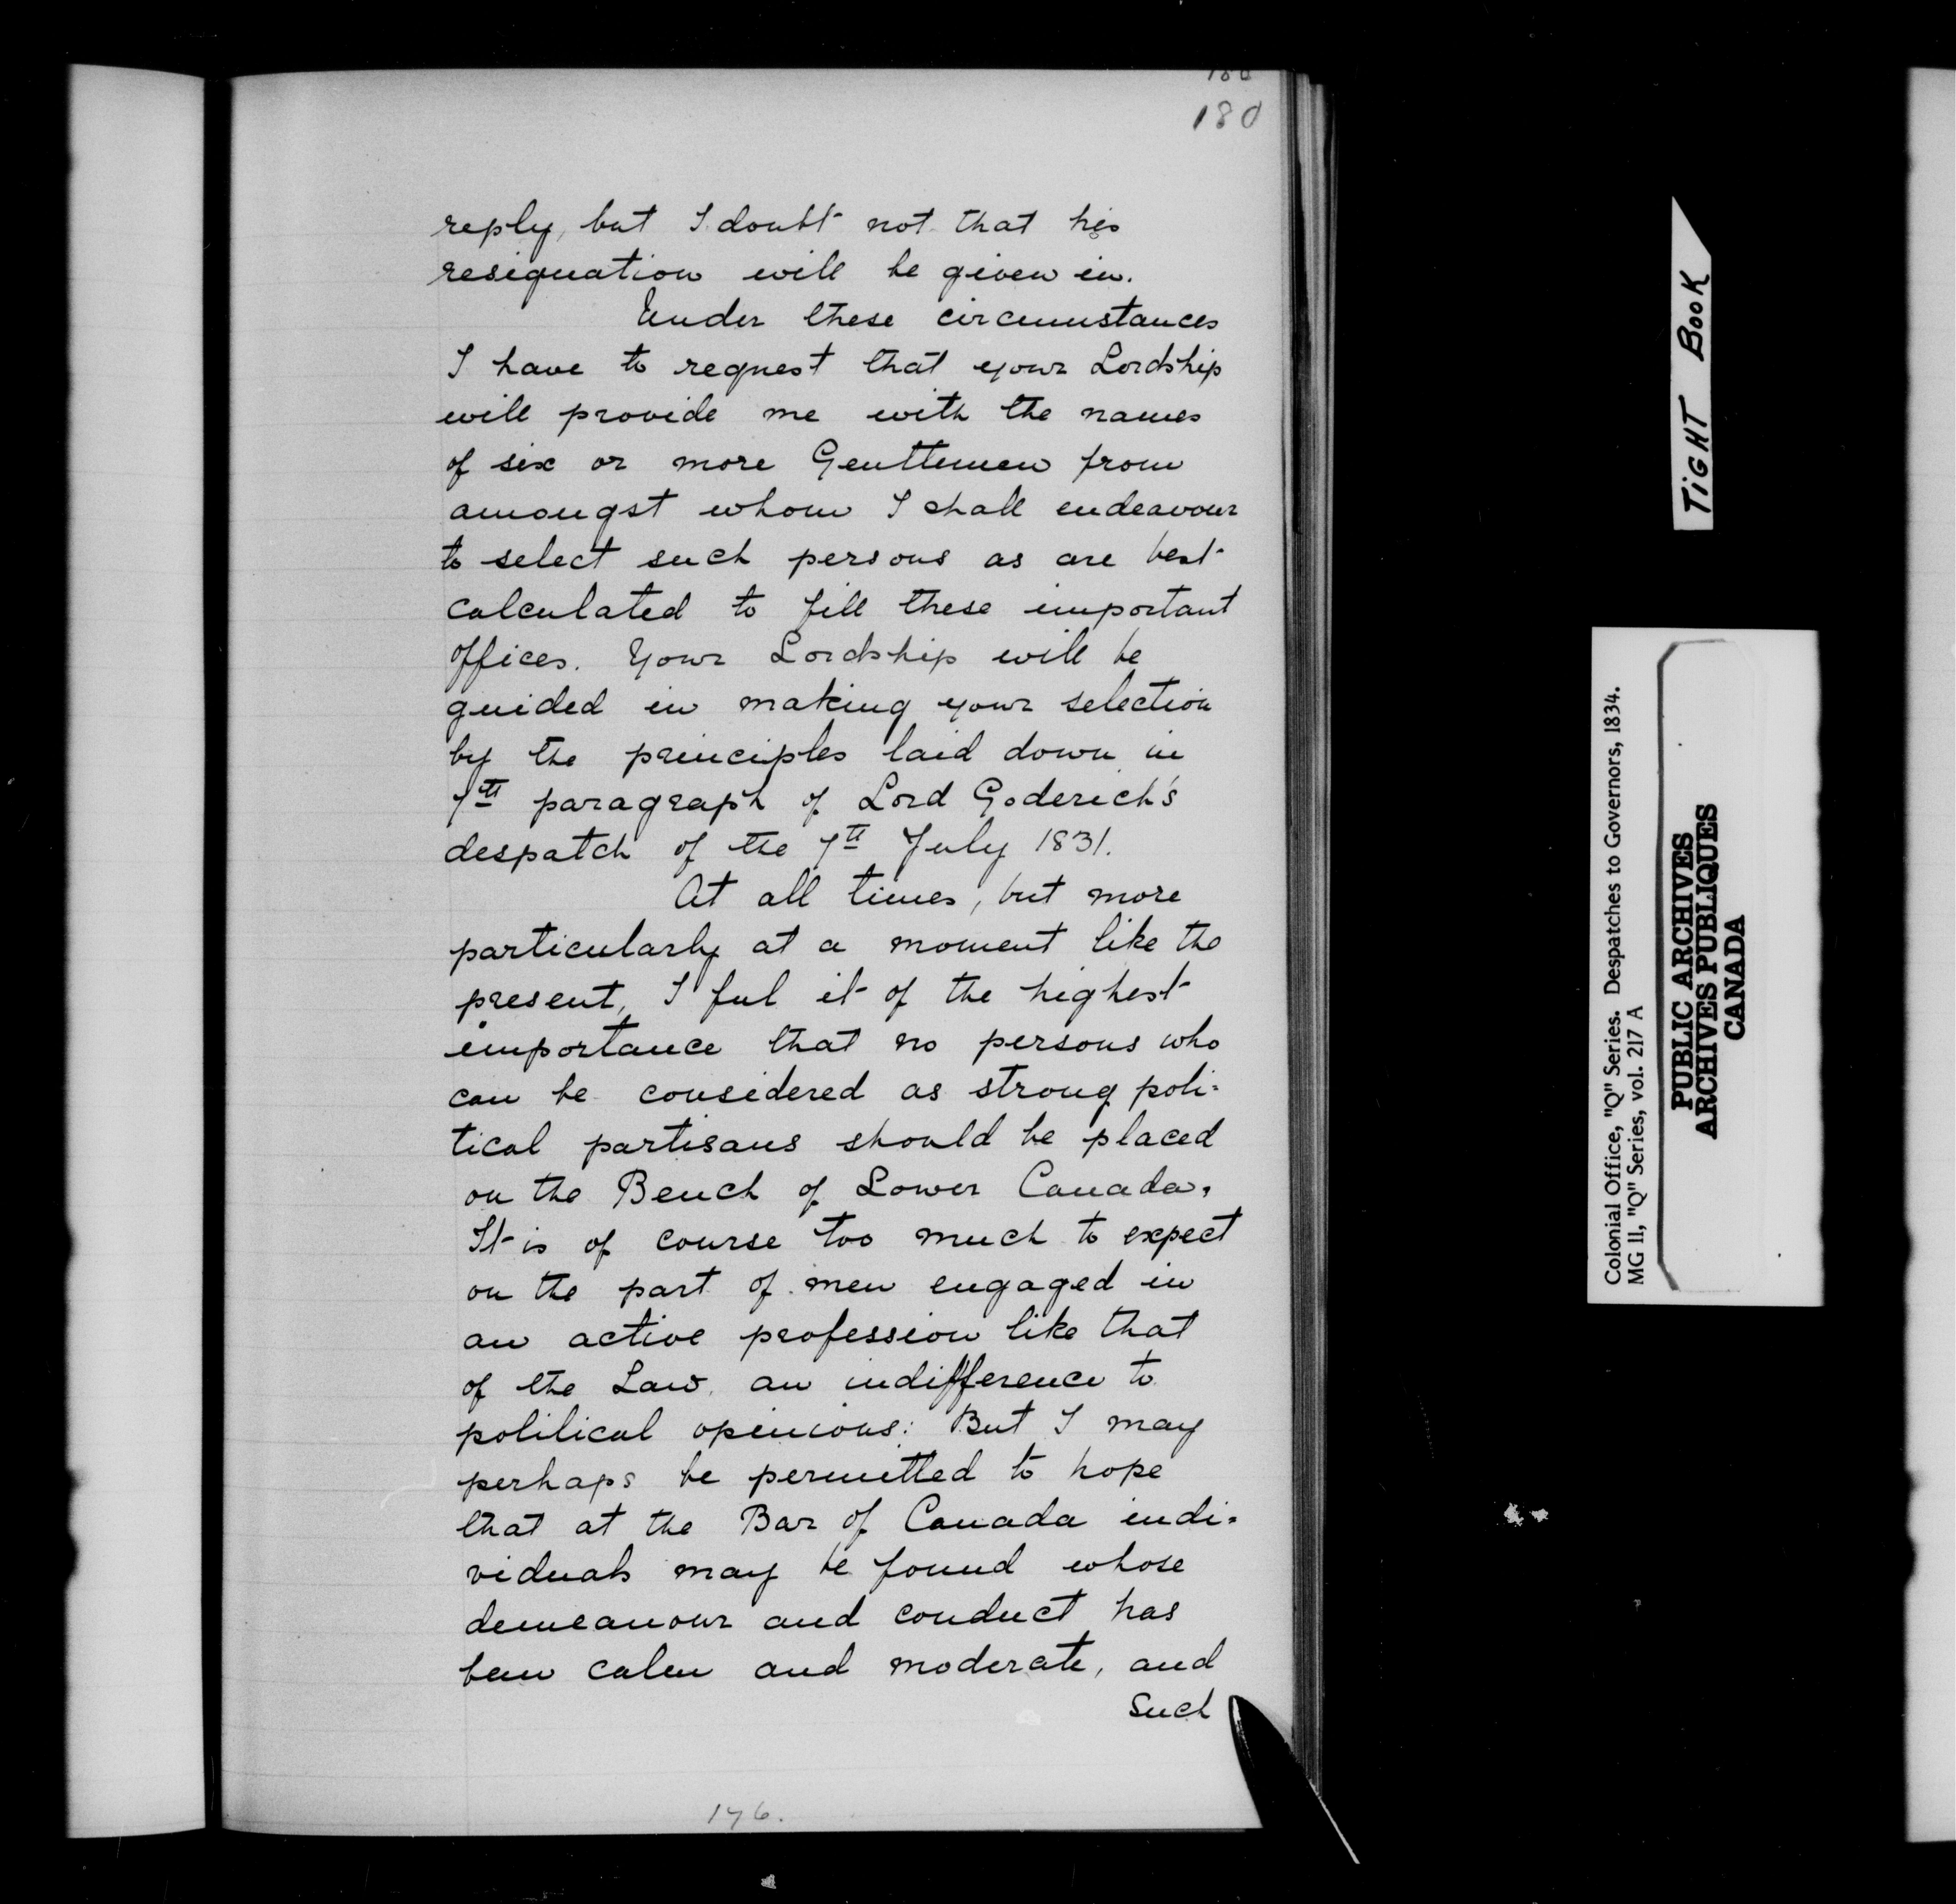 180
180
reply, but I doubt not that his
resignation will be given in.
Under these circumstances
I have to request that your Lordship
will provide me with the names
of six or more Gentlemen from
amongst whom I shall endeavour
to select such persons as are best
calculated to fill these important
offices. Your Lordship will be
guided in making your selection
by the principles laid down in
7th paragraph of Lord Goderich's
despatch of the 7th July 1831.
At all times, but more
particularly at a moment like the
present, I feel it of the highest
importance that no persons who
can be considered as strong poli=
tical partisans should be placed
on the Bench of Lower Canada.
It is of course too much to expect
on the part of men engaged in
an active profession like that
of the Law, an indifference to
political opinions: But I may
perhaps be permitted to hope
that at the Bar of Canada indi=
viduals may be found whose
demeanour and conduct has
been calm and moderate, and
Such
176.
TIGHT BOOK
Colonial Office, "Q" Series. Despatches to Governors, 1834.
MG 11, "Q" Series, vol. 217 A
PUBLIC ARCHIVES
ARCHIVES PUBLIQUES
CANADA